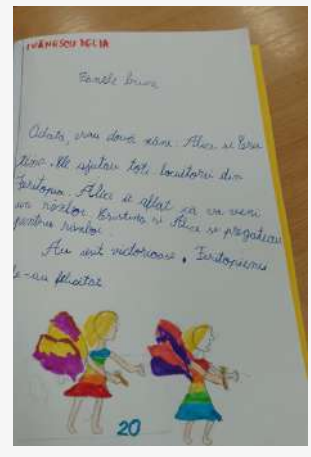 IVĂNESCU DELIA
Zânele bune
Odată, erau două zâne. Alice și Cris
tina. Ele ajutau toți locuitorii din
Alice a aflat că va veni
un război. Cristina și Alice se pregăteau
pentru război
Au ieșit victorioase.
le-au felicitat
20